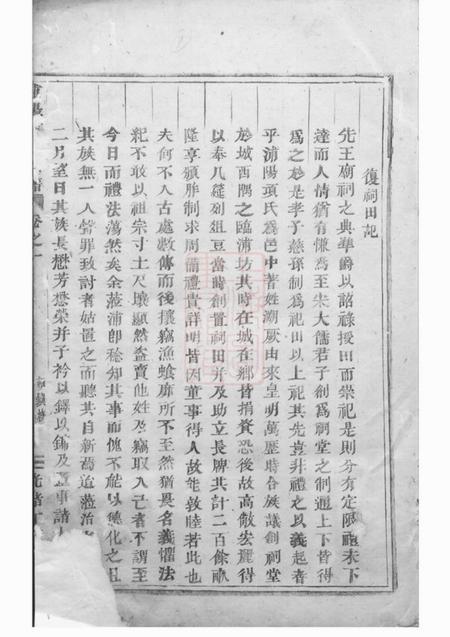 復祠田記
先王廟祠之典準爵以詔祿授田而崇祀是則分有定限禮未下
達而人情猶有慊焉至朱大儒君子創為祠堂之制通上下皆得
為之於是孝子慈孫制為祀田以上祀其先喜非禮之以義起者
乎浦陽項氏為邑中著姓溯厥由來皇明萬歷時合族議創祠堂
於城西隅之臨浦坊其時在城在鄉皆捐貲恐後故高敞宏麗得
以奉几筵列俎豆當時創置祠田并及助立長牌共計二百餘畝
隆享頒胙制求周備禮貴詳明皆因董事得人故能敦睦若此也
夫何不入古處數傳而後攘竊漁蝕靡所不至然猶畏名義懼法
紀不敢以祖宗寸土尺壤顯然盜賣他姓及竊取入己者不謂至
今日而禮法蕩然矣余蒞浦即稔知其事而愧不能以德化之且
其族無一人聲罪致討者姑置之而聽其自新焉迨蒞治
二月望日其族長懋芳懋榮并子衿以鐸以鍚及董事諸
卷之一
光緒丁